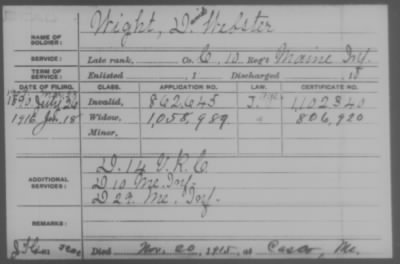 Wight, D. Webster
NAME OF SOLDIER:
SERVICE: Late rank, Co. C, 10 Reg't Maine Inf.
TERM OF SERVICE: Enlisted , 1 Discharged , 18
DATE OF FILING. CLASS. APPLICATION NO. LAW. CERTIFICATE NO.
1890 July 26 Invalid, 862,645 1,102,340
1916 Jan. 18 Widow, 1,058,989 " 806,920
Minor,
ADDITIONAL SERVICES:
D. 14 V.R.C
D 10 Me. Inf.
D 29 Me. Inf.
REMARKS:
Died Nov. 20, 1915, at Casco, Me.